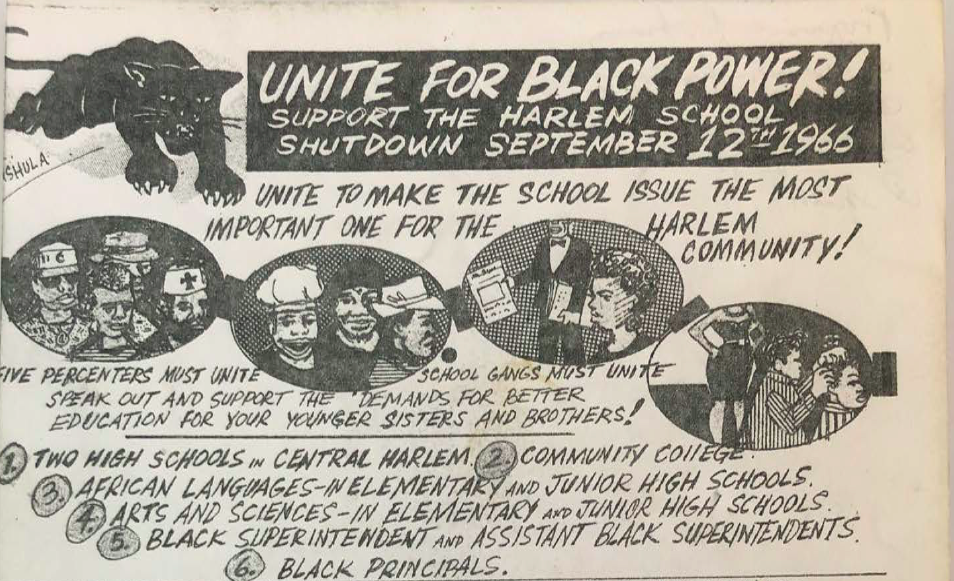 UNITE FOR BLACK POWER!
SUPPORT THE HARLEM SCHOOL
SHUTDOWN SEPTEMBER 12TH 1966
ISHULA
UNITE TO MAKE THE SCHOOL ISSUE THE MOST
IMPORTANT ONE FOR THE HARLEM
COMMUNITY!
FIVE PERCENTERS MUST UNITE SCHOOL GANGS MUST UNITE
SPEAK OUT AND SUPPORT THE DEMANDS FOR BETTER
EDUCATION FOR YOUR YOUNGER SISTERS AND BROTHERS!
1. TWO HIGH SCHOOLS IN CENTRAL HARLEM. 2. COMMUNITY COLLEGE.
3. AFRICAN LANGUAGES-IN ELEMENTARY AND JUNIOR HIGH SCHOOLS.
4. ARTS AND SCIENCES-IN ELEMENTARY AND JUNIOR HIGH SCHOOLS.
5. BLACK SUPERINTENDENT AND ASSISTANT BLACK SUPERINTENDENTS.
6. BLACK PRINCIPALS.